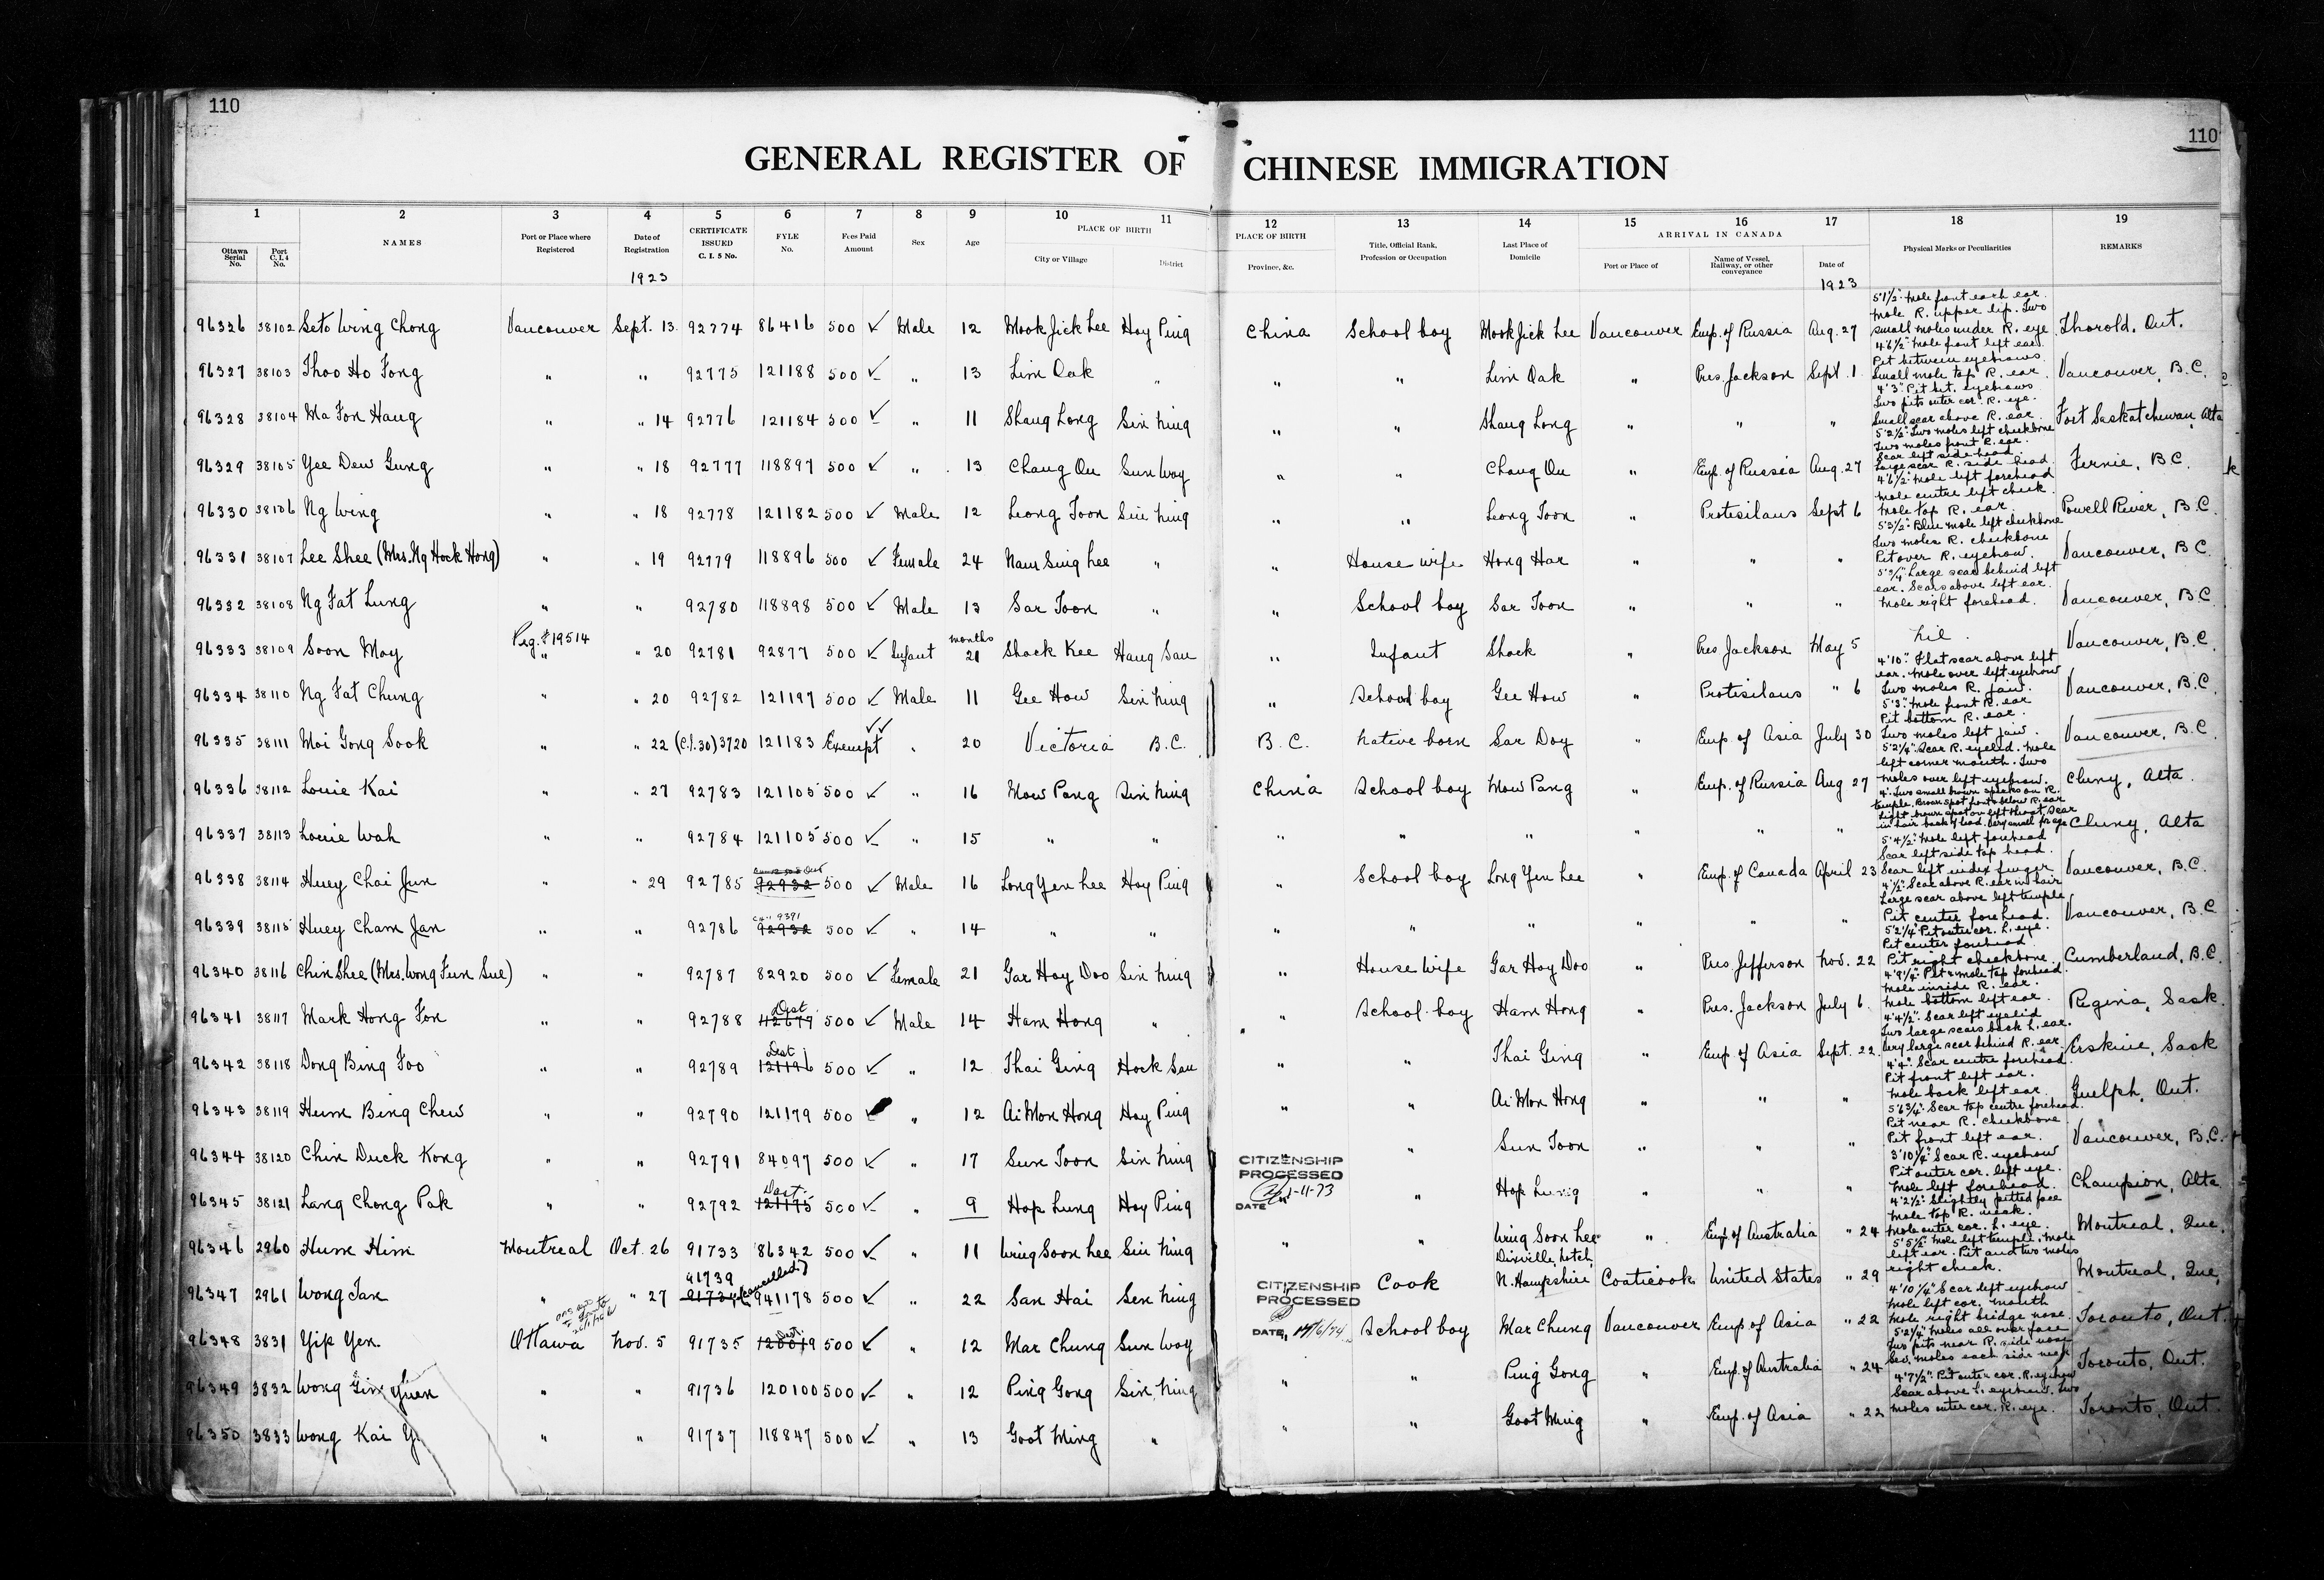 110
110
GENERAL REGISTER OF CHINESE IMMIGRATION
1 2 3 4 5 6 7 8 9 10 11 12 13 14 15 16 17 18 19
Ottawa Serial No. Port C.I.4 No. NAMES Port or Place where Registered Date of Registration CERTIFICATE ISSUED C. I. 5 No. FYLE No. Fees Paid Amount Sex Age PLACE OF BIRTH City or Village District PLACE OF BIRTH Province, &c. Title, Official Rank, Profession or Occupation Last Place of Domicile ARRIVAL IN CANADA Port or Place of Name of Vessel, Railway, or other conveyance Date of Physical Marks or Peculiarities REMARKS
1923 1923
96326 38102 Seto Wing Chong Vancouver Sept. 13 92774 86416 500 ✓ Male 12 Mook Jick Lee Hoy Ping China School boy Mook Jick Lee Vancouver Emp. of Russia Aug. 27 5'1½" Mole front each ear. Mole R. upper lip. Two small moles under R. eye. Thorold, Ont.
96327 38103 Thoo Ho Fong " " 92775 121188 500 ✓ " 13 Lim Oak " " " Lim Oak " Pres. Jackson Sept. 1 4'6½" Mole front left ear. Pit between eyebrows. Small mole top R. ear. Vancouver, B.C.
96328 38104 Ma Fon Hang " " 14 92776 121184 500 ✓ " 11 Shang Long Sin Ning " " Shang Long " " " 4'3" Pit bet. eyebrows. Two pits outer cor. R. eye. Small scar above R. ear. Fort Saskatchewan, Alta
96329 38105 Yee Dew Gung " " 18 92777 118897 500 ✓ " 13 Chang On Sun Woy " " Chang On " Emp. of Russia Aug. 27 5'2½" Two moles left cheekbone Two moles front R. ear. Scar left side head. Large scar R. side head. Fernie, B.C.
96330 38106 Ng Wing " " 18 92778 121182 500 ✓ Male 12 Leong Toon Sin Ning " " Leong Toon " Protisilaus Sept 6 4'6½" Mole left forehead Mole centre left cheek. Mole top R. ear. Powell River, B.C.
96331 38107 Lee Shee (Mrs. Ng Hock Hong) " " 19 92779 118896 500 ✓ Female 24 Nam Sing Lee " " House wife Hong Har " " " 5'3½" Blue mole left cheekbone Two moles R. cheekbone Pit over R. eyebrow. Vancouver, B.C.
96332 38108 Ng Fat Lung " " 92780 118898 500 ✓ Male 13 Sar Toon " " School boy Sar Toon " " " Large scar behind left ear. Scars above left ear. Mole right forehead. Vancouver, B.C.
96333 38109 Soon Moy Reg. # 19514 " " 20 92781 92877 500 ✓ Infant months 21 Shock Kee Hang San " Infant Shock " Pres. Jackson May 5 nil. Vancouver, B.C.
96334 38110 Ng Fat Chung " " 20 92782 121197 500 ✓ Male 11 Gee How Sin Ning " School boy Gee How " Protisilaus " 6 4'10" Flat scar above left ear. Mole over left eyebrow Two moles R. jaw. Vancouver, B.C.
96335 38111 Moi Gong Sook " " 22 (C.I.30) 3720 121183 Exempt ✓✓ " 20 Victoria B.C. B.C. Native born Sar Doy " Emp. of Asia July 30 5'3" Mole front R. ear Pit bottom R. ear. Two moles left jaw. Vancouver, B.C.
96336 38112 Louie Kai " " 27 92783 121105 500 ✓ " 16 Mow Pang Sin Ning China School boy Mow Pang " Emp. of Russia Aug 27 5'2¼" Scar R. eyelid. Mole left corner mouth. Two moles over left eyebrow. Cluny, Alta.
96337 38113 Louie Wah " " 92784 121105 500 ✓ " 15 " " " " " " " " 4' Two small brown specks on R. temple. Brown spot front & below R. ear Light brown spot on left throat. Scar in hair back of head. Very small for age Cluny, Alta
96338 38114 Huey Chai Jun " " 29 92785 92932 500 ✓ Male 16 Long Yen Lee Hoy Ping " School boy Long Yen Lee " Emp. of Canada April 23 5'4½" Mole left forehead Scar left side top head. Scar left index finger Vancouver, B.C.
96339 38115 Huey Cham Jan " " 92786 9391 92932 500 ✓ " 14 " " " " " " " " 4'½" Scar above R. ear in hair Large scar above left temple Pit centre forehead. Vancouver, B.C.
96340 38116 Chin Shee (Mrs. Wong Fun Sue) " " 92787 82920 500 ✓ Female 21 Gar Hoy Doo Sin Ning " House wife Gar Hoy Doo " Pres. Jefferson Nov. 22 5'2¼" Pit outer cor. L. eye. Pit center forehead. Pit right cheekbone. Cumberland, B.C.
96341 38117 Mark Hong Fon " " 92788 Dest. 112677 500 ✓ Male 14 Ham Hong " " School boy Ham Hong " Pres. Jackson July 6 4'9¼" Pit & mole top forehead. Mole inside R. ear. Mole bottom left ear. Regina, Sask.
96342 38118 Dong Bing Foo " " 92789 Dest 121196 500 ✓ " 12 Thai Ging Hock San " " Thai Ging " Emp. of Asia Sept. 22 4'4½" Scar left eyelid Two large scars back L. ear. Very large scar behind R. ear. Erskine, Sask
96343 38119 Hum Bing Chew " " 92790 121179 500 ✓ " 12 Ai Mon Hong Hoy Ping " " Ai Mon Hong " " " 4'4" Scar centre forehead. Pit front left ear. Mole back left ear. Guelph, Ont.
96344 38120 Chin Duck Kong " " 92791 84097 500 ✓ " 17 Sun Toon Sin Ning " " Sun Toon " " " 5'6¾" Scar top centre forehead. Pit near R. cheekbone. Pit front left ear. Vancouver, B.C.
CITIZENSHIP PROCESSED 1-11-73 DATE
96345 38121 Lang Chong Pak " " 92792 Dest. 121175 500 ✓ " 9 Hop Lung Hoy Ping " " Hop Lung " " " 3'10¼" Scar R. eyebrow Pit outer cor. left eye. Mole left forehead. Champion, Alta
96346 2960 Hum Him Montreal Oct. 26 91733 86342 500 ✓ " 11 Wing Soon Lee Sin Ning " " Wing Soon Lee " Emp. of Australia " 24 4'2½" Slightly pitted face Mole top R. neck. Mole outer cor. L. eye. Montreal, Que.
96347 2961 Wong Jan " " 27 91739 91734 (cancelled) 941178 500 ✓ " 22 San Hai Sen Ning Cook Dixville Notch, N. Hampshire Coaticook United States " 29 5'5½" Mole left temple. Mole left ear. Pit and two moles right cheek. Montreal, Que.
CITIZENSHIP PROCESSED DATE 17/6/74
96348 3831 Yip Yen Ottawa Nov. 5 91735 Dest. 120019 500 ✓ " 12 Mar Chung Sun Woy School boy Mar Chung Vancouver Emp. of Asia " 22 4'10¼" Scar left eyebrow Mole left cor. mouth Mole right bridge nose. Toronto, Ont.
96349 3832 Wong Gin Yuen " " 91736 120100 500 ✓ " 12 Ping Gong Sin Ning " " Ping Gong " Emp. of Australia " 24 5'2¼" Moles all over face Two pits near R. side nose Sev. moles each side neck Toronto, Ont.
96350 3833 Wong Kai " " 91737 118847 500 ✓ " 13 Goot Ming " " " Goot Ming " Emp. of Asia " 22 4'7½" Pit outer cor. R. eyebrow Scar above L. eyebrow. Two moles outer cor. R. eye. Toronto, Ont.